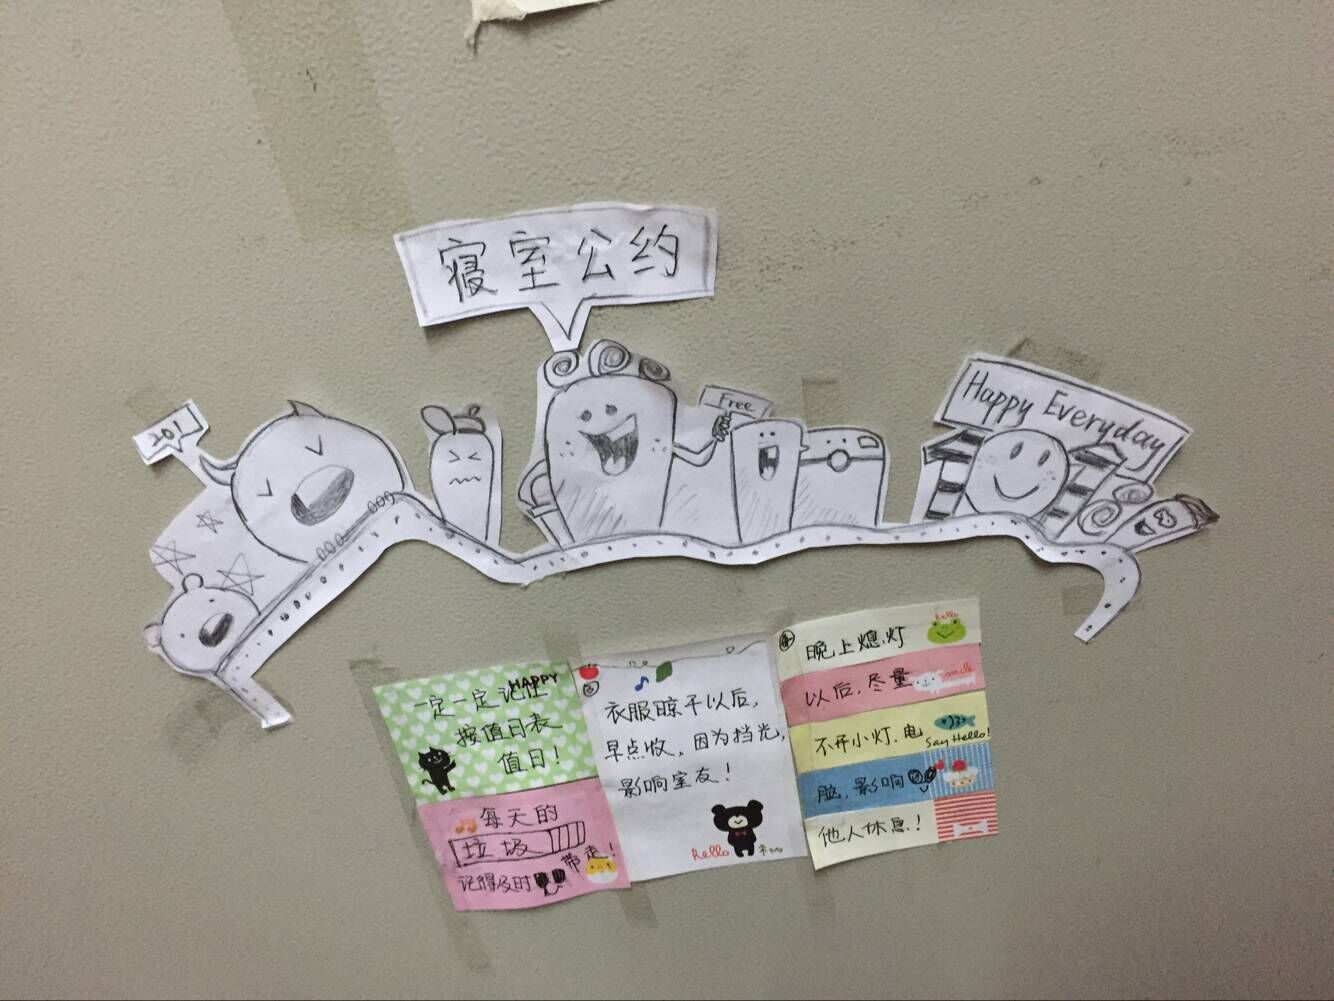 寝室公约
201
Free
Happy Everyday
HAPPY
一定一定记住
按值日表
值日！
每天的
垃圾
带走！
记得及时
衣服晾干以后，
早点收，因为挡光，
影响室友！
Hello
晚上熄灯
Hello
以后，尽量
smile
不开小灯、电
Say Hello!
脑，影响
他人休息！